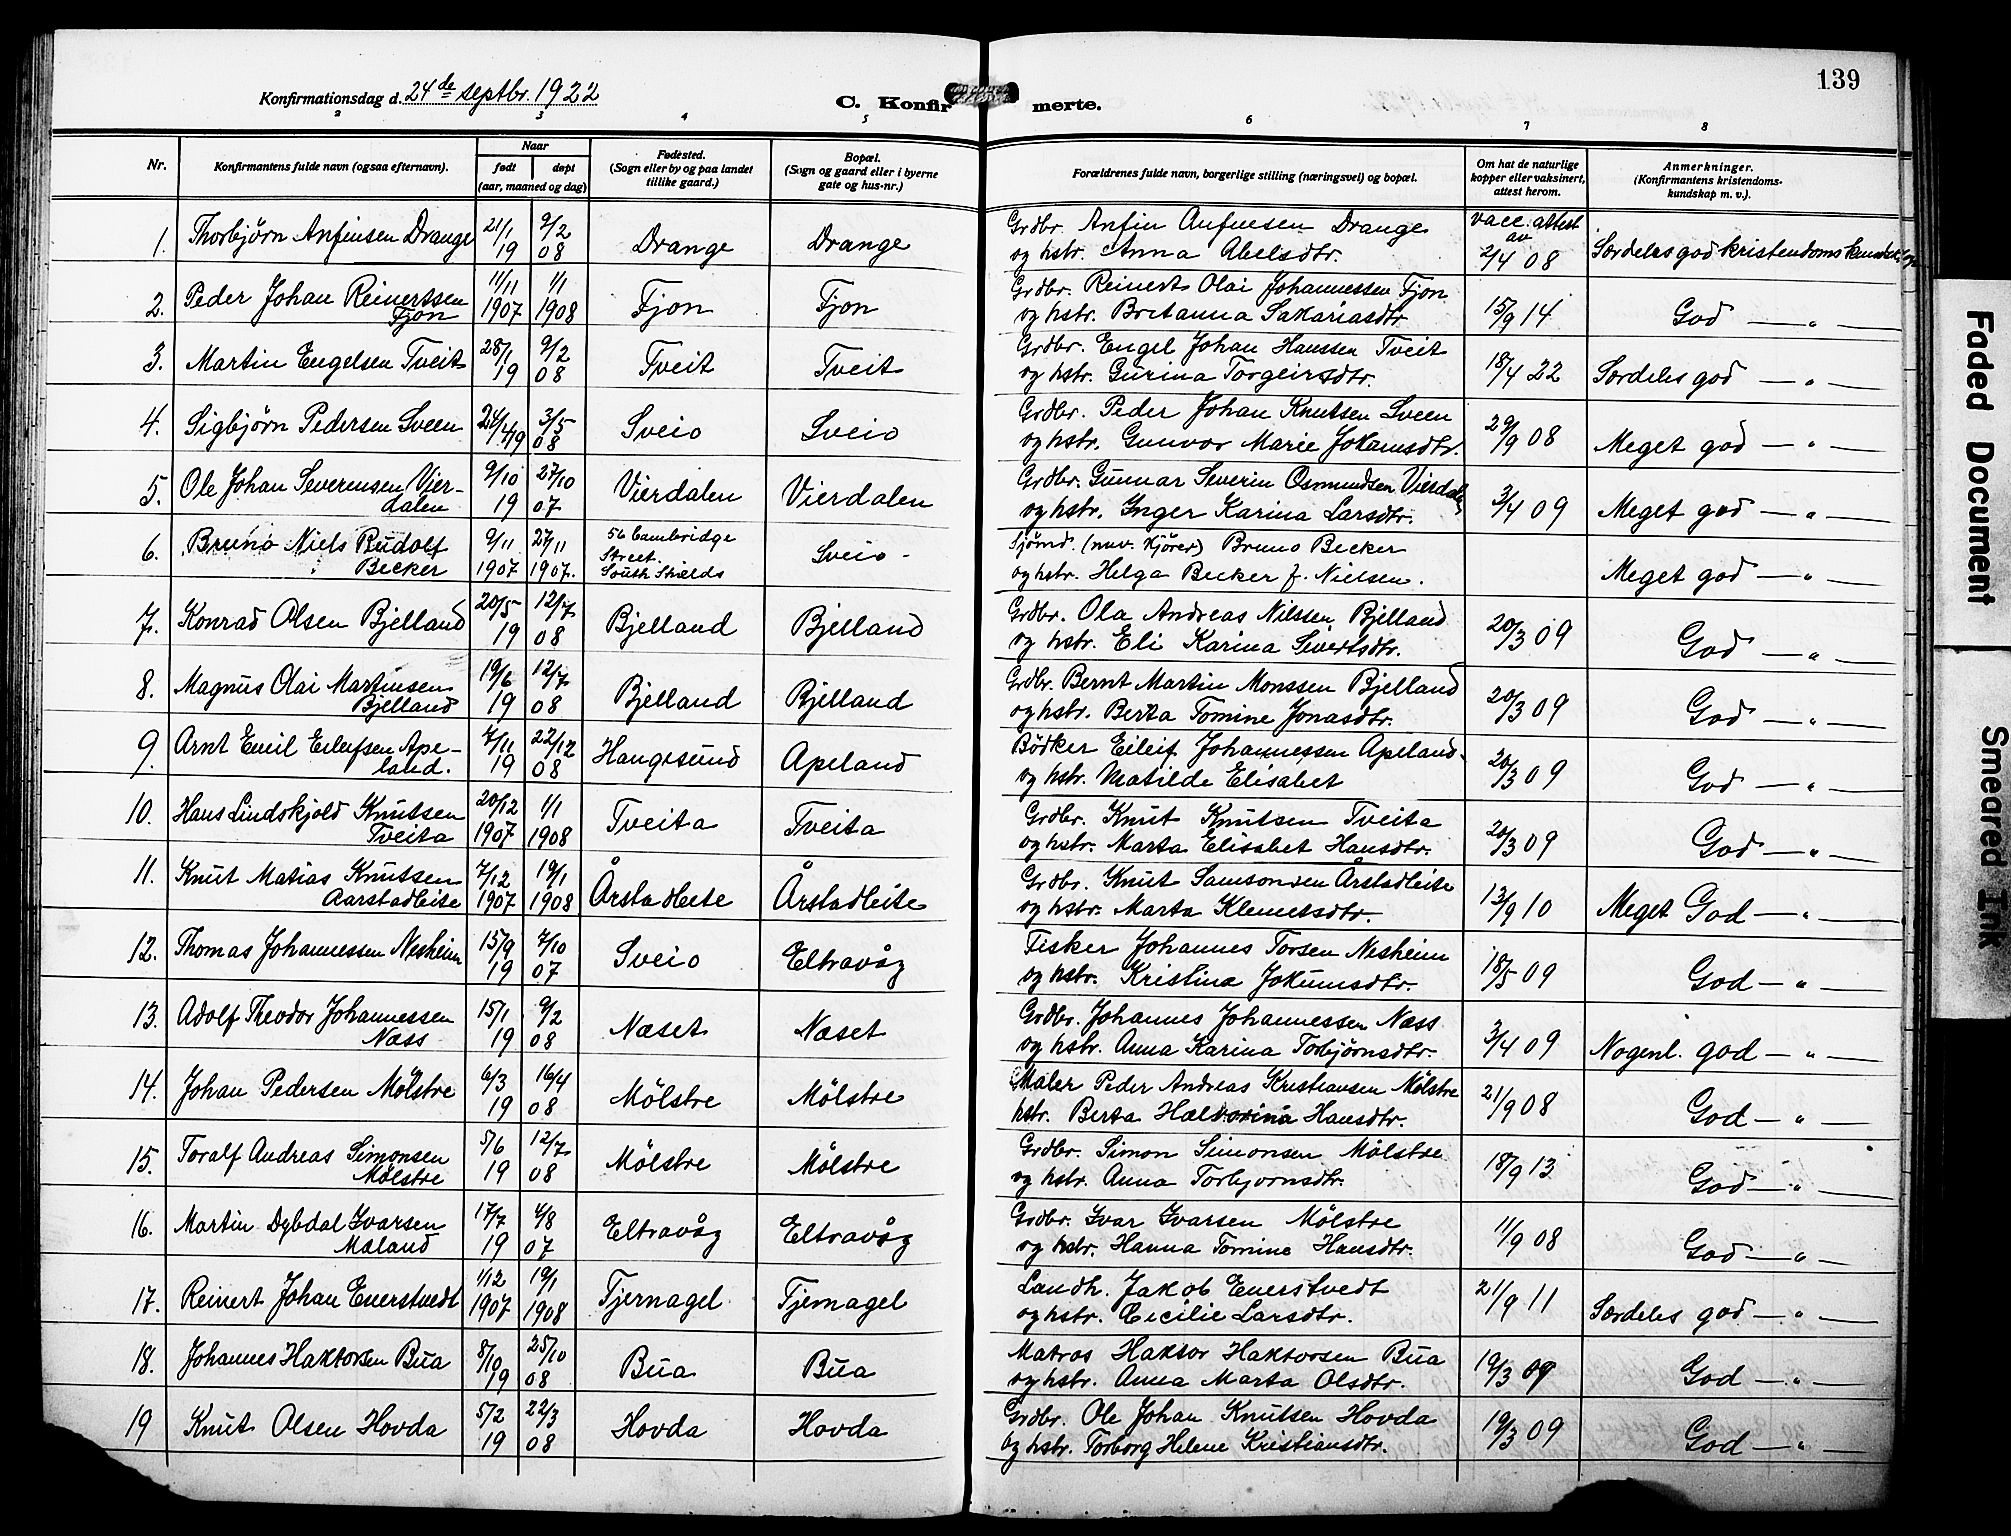 139
Konfirmationsdag d. 24de septbr. 1922
C. Konfirmerte.
2 3 4 5 6 7 8
Nr.
Konfirmantens fulde navn (ogsaa efternavn).
Naar
født
døpt
(aar, maaned og dag)
Fødested.
(Sogn eller by og paa landet
tillike gaard.)
Bopæl.
(Sogn og gaard eller i byerne
gate og hus-nr.)
Forældrenes fulde navn, borgerlige stilling (næringsvei) og bopæl.
Om hat de naturlige
kopper eller vaksinert,
attest herom.
Anmerkninger.
(Konfirmantens kristendoms-
kundskap m. v.).
1. Thorbjørn Anfinsen Drange 21/1 19 08 9/2 Drange Drange Grdbr. Anfin Anfinsen Drange vacc. attest av
og hstr. Anna Abelsdtr. 2/4 08 Særdeles god kristendomskundskap
2. Peder Johan Reinertsen 11/11 1/1 Grdbr. Reinert Olai Johannessen Fjon
Fjon 1907 1908 Fjon Fjon og hstr. Britanna Sakariasdtr. 15/9 14 God — „ —
3. Martin Engelsen Tveit 28/1 9/2 Tveit Tveit Grdbr. Engel Johan Hanssen Tveit
19 08 og hstr. Gurina Torgeirsdtr. 18/4 22 Særdeles god — „ —
4. Sigbjørn Pedersen Sveen 24/4 19 3/5 08 Sveio Sveio Grdbr. Peder Johan Knutsen Sveen
og hstr. Gunvor Marie Jokumsdtr. 29/9 08 Meget god — „ —
5. Ole Johan Severinsen Vier- 9/10 27/10 Vierdalen Vierdalen Grdbr. Gunnar Severin Osmundsen Vierdalen
dalen 19 07 og hstr. Inger Karina Larsdtr. 3/4 09 Meget god — „ —
6. Bruno Niels Rudolf 9/11 27/11 56 Cambridge Sveio Sjømd. (nuv. kjører) Bruno Becker
Becker 1907 1907. Street. South Shields og hstr. Helga Becker f. Nielsen. Meget god — „ —
7. Konrad Olsen Bjelland 20/5 12/7 Bjelland Bjelland Grdbr. Ola Andreas Nilssen Bjelland
19 08 og hstr. Eli Karina Sivertsdtr. 20/3 09 God — „ —
8. Magnus Olai Martinsen 19/6 12/7 Bjelland Bjelland Grdbr. Bernt Martin Monssen Bjelland
Bjelland 19 08 og hstr. Berta Tomine Jonasdtr. 20/3 09 God — „ —
9. Arnt Emil Eilefsen Ape- 7/11 22/12 Haugesund Apeland Bödker Eileif Johannessen Apeland
land. 19 08 og hstr. Matilde Elisabet 20/3 09 God — „ —
10. Hans Lindskjold Knutsen 20/12 1/1 Tveita Tveita Grdbr. Knut Knutsen Tveita
Tveita 1907 1908 og hstr. Marta Elisabet Hansdtr. 20/3 09 God — „ —
11. Knut Matias Knutsen 7/12 19/1 Årstadleite Årstadleite Grdbr. Knut Samsonsen Årstadleite
Aarstadleite 1907 1908 og hstr. Marta Klemetsdtr. 13/9 10 Meget God — „ —
12. Thomas Johannessen Nesheim 15/9 7/10 Sveio Eltravåg Fisker Johannes Torsen Nesheim
19 07 og hstr. Kristina Jokumsdtr. 18/5 09 God — „ —
13. Adolf Theodor Johannessen 15/1 9/2 Næset Næset Grdbr. Johannes Johannessen Næss
Næss 19 08 og hstr. Anna Karina Torbjörnsdtr. 3/4 09 Nogenl. god — „ —
14. Johan Pedersen Mölstre 6/3 16/4 Mölstre Mölstre Maler Peder Andreas Kristiansen Mölstre
19 08 hstr. Berta Halvorina Hansdtr. 21/9 08 God — „ —
15. Toralf Andreas Simonsen 5/6 12/7 Mölstre Mölstre Grdbr. Simon Simonsen Mölstre
Mölstre 19 08 og hstr. Anna Torbjornsdtr. 18/9 13 God — „ —
16. Martin Dybdal Ivarsen 17/7 4/8 Eltravåg Eltravåg Grdbr. Ivar Ivarsen Mölstre
Mæland 19 07 og hstr. Hanna Tomine Hansdtr. 11/9 08 God — „ —
17. Reinert Johan Enerstvedt 1/12 19/1 Tjernagel Tjernagel Landh. Jakob Enerstvedt
1907 1908 og hstr. Cecilie Larsdtr. 21/9 11 Særdeles god — „ —
18. Johannes Haktorsen Bua 8/10 25/10 Bua Bua Matros Haktor Haktorsen Bua
19 08 og hstr. Anna Marta Olsdtr. 19/3 09 God — „ —
19 Knut Olsen Hovda 5/2 22/3 Hovda Hovda Grdbr. Ole Johan Knutsen Hovda
19 08 og hstr. Torborg Helene Kristiansdtr. 19/3 09 God — „ —
Faded Document
Smeared Ink